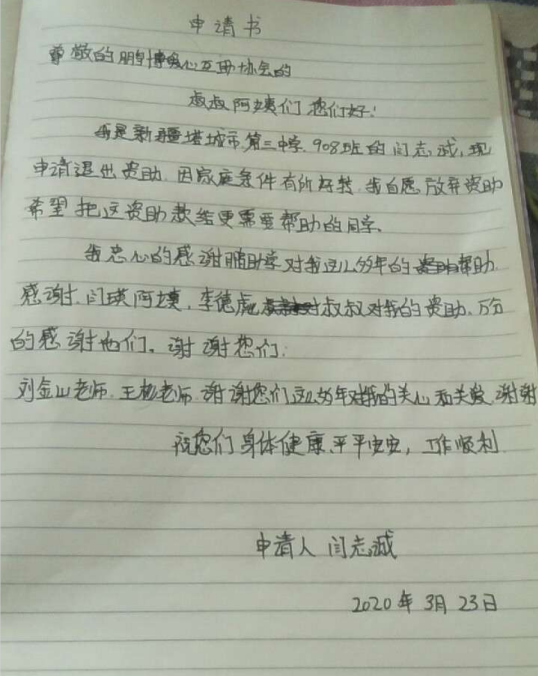 申请书
尊敬的鹏博爱心互助协会的
叔叔阿姨们 您们好！
我是新疆塔城市第三中学 908班的闫志诚，现
申请退出资助，因家庭条件有所好转，我自愿放弃资助
希望把这资助款给更需要帮助的同学。
我忠心的感谢鹏助学对我这么多年的帮助
感谢 闫瑛阿姨，李德虎叔叔对我的资助，万分
的感谢他们。谢谢您们：
刘金山老师 王松老师 谢谢您们这么多年对我的关心和关爱，谢谢
祝您们身体健康，平平安安，工作顺利
申请人 闫志诚
2020年3月23日